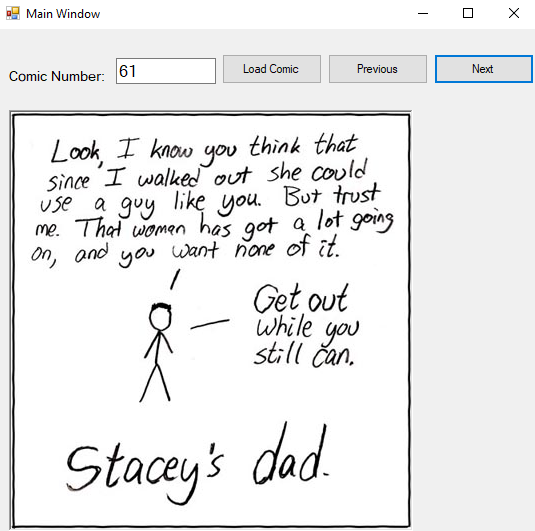 Main Window
Comic Number: 61 Load Comic Previous Next
Look, I know you think that
since I walked out she could
use a guy like you. But trust
me. That woman has got a lot going
on, and you want none of it.
Get out
while you
still can.
Stacey's dad.